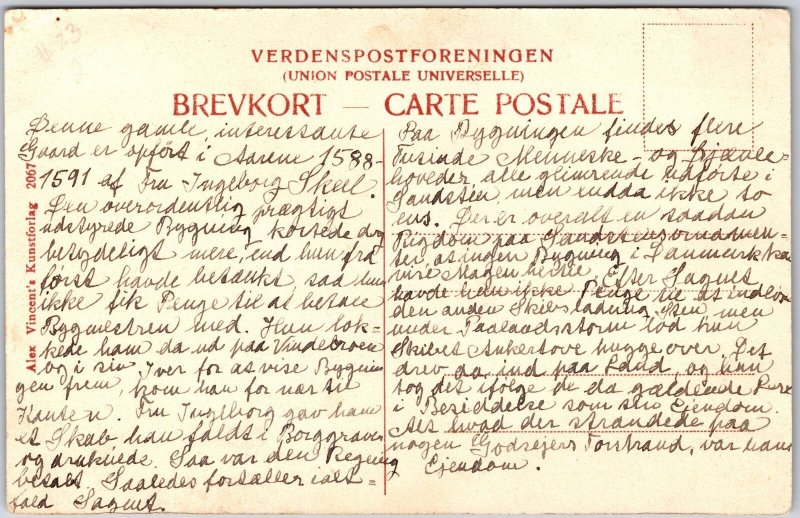 VERDENSPOSTFORENINGEN
(UNION POSTALE UNIVERSELLE)
BREVKORT — CARTE POSTALE
Alex Vincent's Kunstforlag 2067
Denne gamle, interessante
Gaard er opført i Aarene 1588-
1591 af Fru Ingeborg Skeel.
Den overordentlig prægtigt
udstyrede Bygning kostede dog
betydeligt mere, end hun fra
først havde betænkt, saa hun
ikke fik Penge til at betale
Bygmestren med. Hun lok-
kede ham da ud paa Vindebroen
og i sin Iver for at vise Bygnin
gen frem, kom han for nær til
Kanten. Fru Ingeborg gav ham
et Skub, han faldt i Borggraven
og druknede. Saa var den Regning
betalt. Saaledes fortæller ialt=
fald Sagnet.
Paa Bygningen findes flere
Tusinde Menneske- og Djævle-
hoveder alle glimrende udførte i
Sandsten, men endda ikke to
ens. Der er overalt en saadan
Rigdom paa Sandstensornamen-
ter, at ingen Bygning i Danmark kan
vise Magen hertil. Efter Sagnet
havde hun ikke Penge til at indløse
den anden Skibsladning Sten, men
under Paalandsstorm lod hun
Skibets Ankertove hugge over. Det
drev da ind paa Land, og hun
tog det ifølge de da gældende
i Besiddelse som sin Ejendom.
Alt hvad der strandede paa
nogen Godsejers Forstrand, var hans
Ejendom.